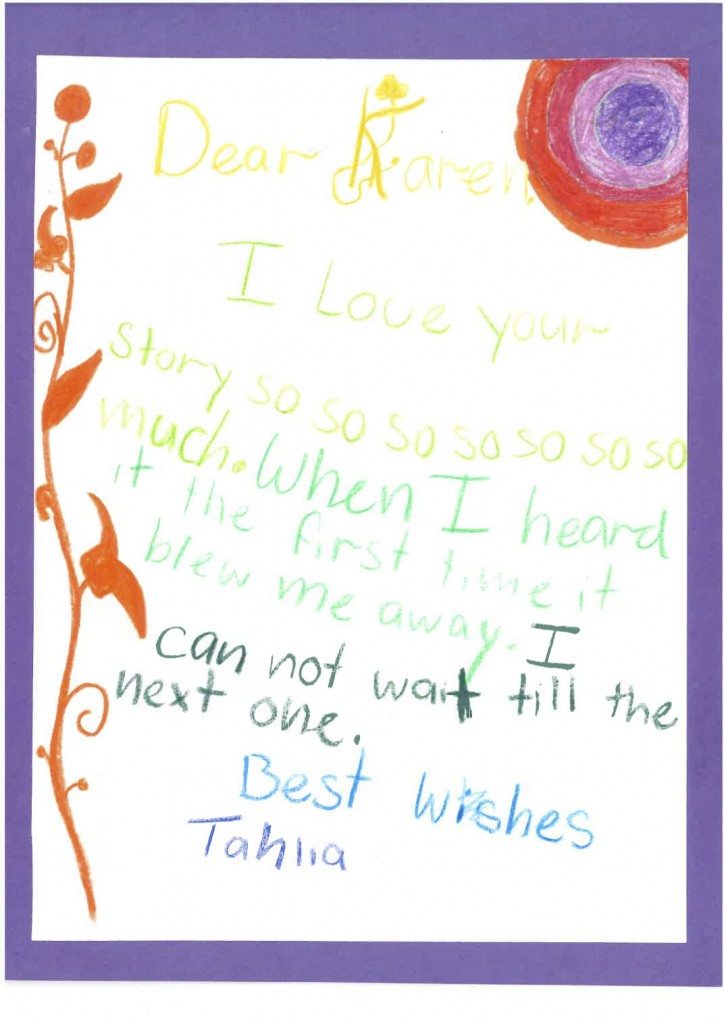 Dear Karen,
I Love your
story so so so so so so so
much. When I heard
it the first time it
blew me away. I
can not wait till the
next one.
Best wishes
Tahlia